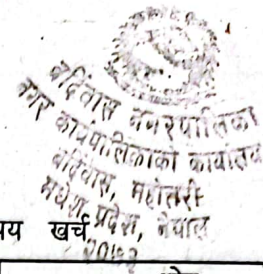 बर्दिबास नगरपालिका
नगर कार्यपालिकाको कार्यालय
बर्दिबास, महोत्तरी
मधेश प्रदेश, नेपाल
खर्च